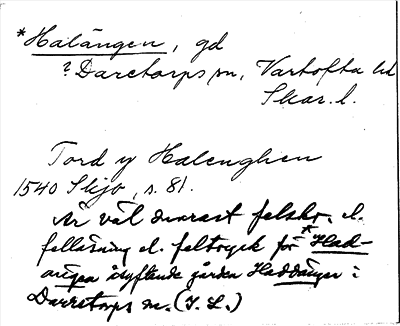 *Halängen, gd
? Daretorps sn, Vartofta hd
Skar. l.
Tord y Halenghen
1540 Skjo, s. 81.
Är väl snarast felskr. el.
felläsning el. feltryck för *Had-
ängen åsyftande gården Haddänger i
Daretorps sn. (I. L.)